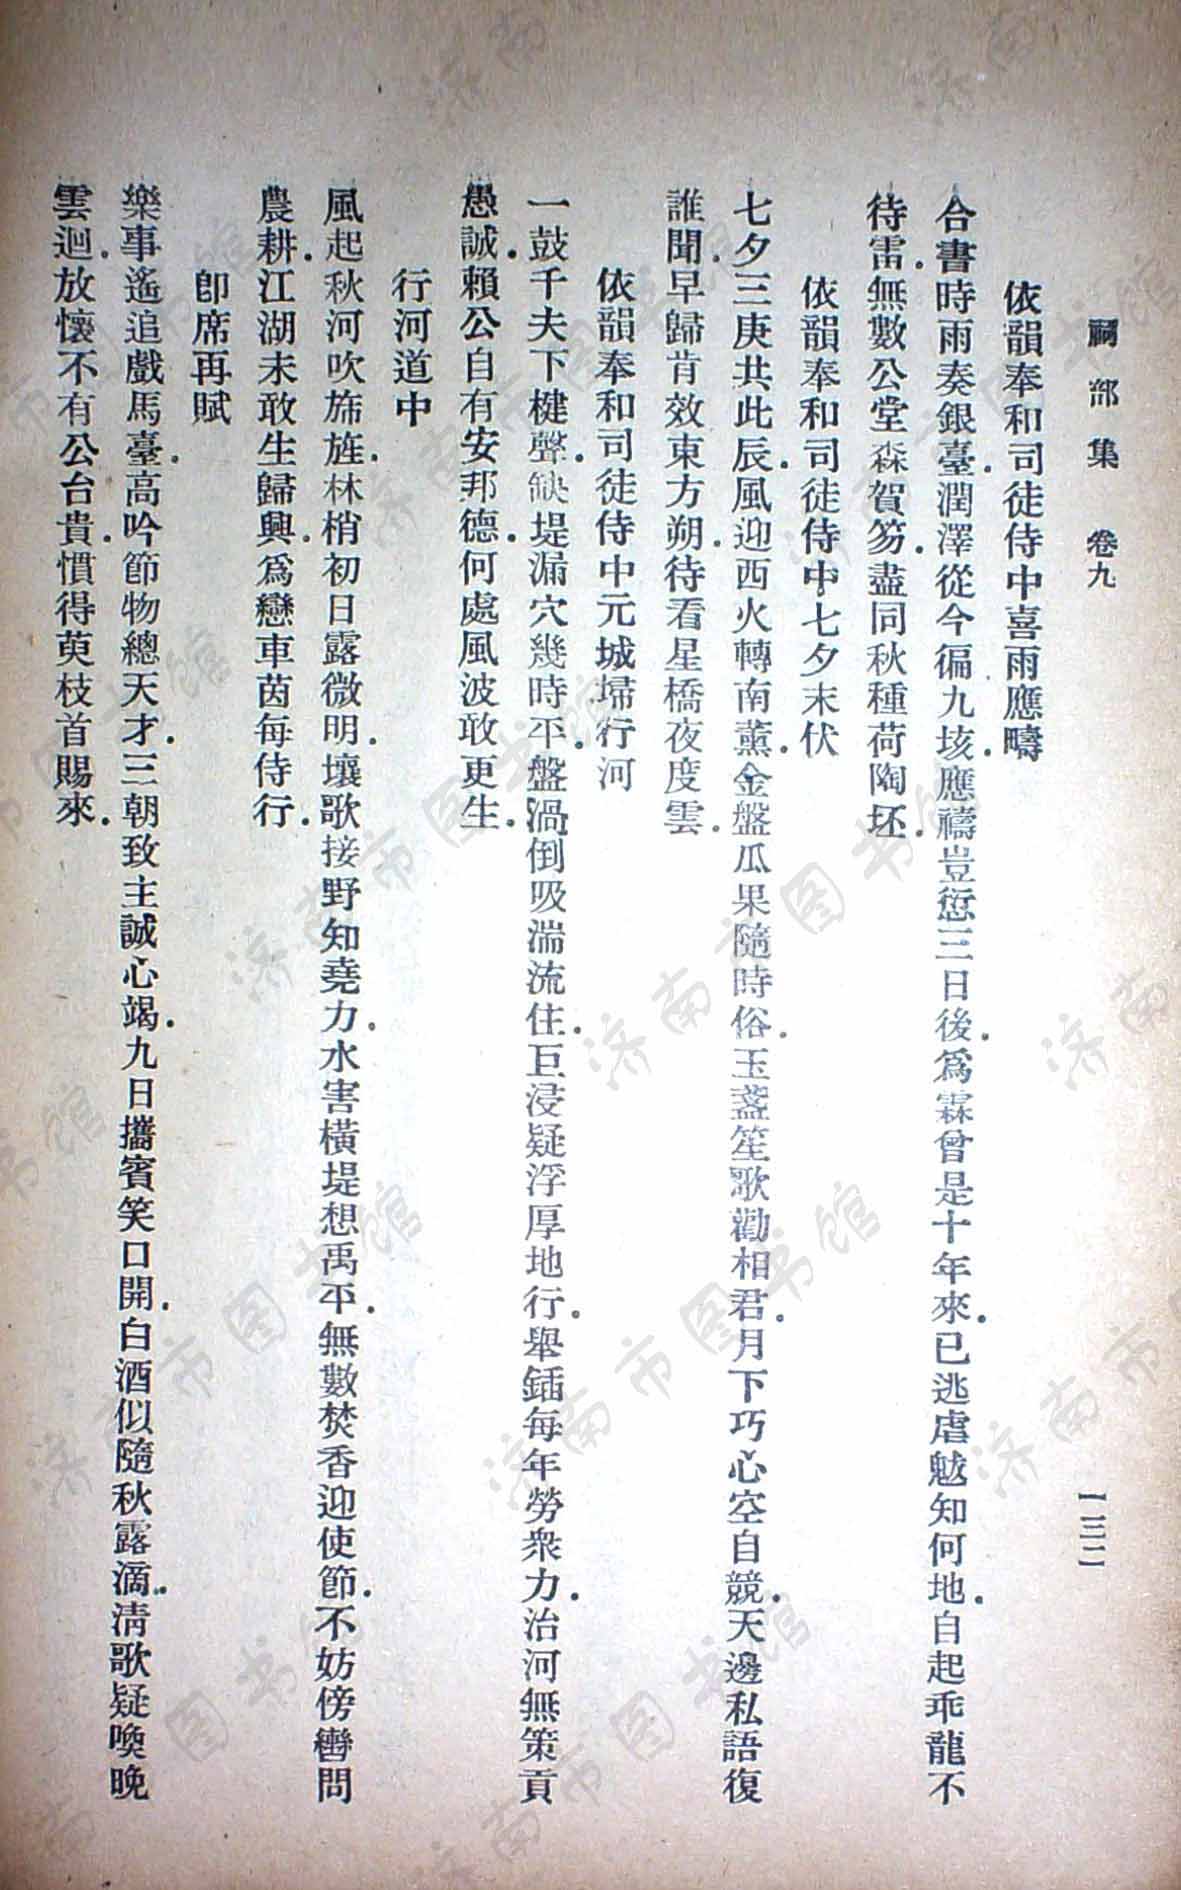 祠部集 卷九 一三二
依韻奉和司徒侍中喜雨應疇
合書時雨奏銀臺。潤澤從今徧九垓。應禱豈愆三日後。爲霖曾是十年來。已逃虐魃知何地。自起乖龍不
待雷。無數公堂森賀笏。盡同秋種荷陶坯。
依韻奉和司徒侍中七夕末伏
七夕三庚共此辰。風迎西火轉南薰。金盤瓜果隨時俗。玉盞笙歌勸相君。月下巧心空自競。天邊私語復
誰聞。早歸肯效東方朔。待看星橋夜度雲。
依韻奉和司徒侍中元城埽行河
一鼓千夫下楗聲。缺堤漏穴幾時平。盤渦倒吸湍流住。巨浸疑浮厚地行。舉鍤每年勞衆力。治河無策貢
愚誠。賴公自有安邦德。何處風波敢更生。
行河道中
風起秋河吹旆旌。林梢初日露微明。壤歌接野知堯力。水害橫堤想禹平。無數焚香迎使節。不妨傍轡問
農耕。江湖未敢生歸興。爲戀車茵每侍行。
卽席再賦
樂事遙追戲馬臺。高吟節物總天才。三朝致主誠心竭。九日攜賓笑口開。白酒似隨秋露滴。淸歌疑喚晚
雲迴。放懷不有公台貴。慣得萸枝首賜來。
济南市图书馆